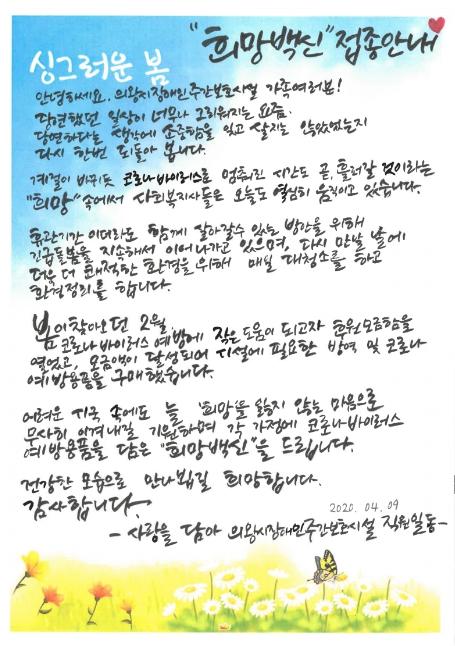 싱그러운 봄 "희망백신" 접종안내
안녕하세요. 의왕시장애인주간보호시설 가족여러분!
당연했던 일상이 너무나 그리워지는 요즘.
당연하다는 생각에 소중함을 잊고 살지는 않았었는지
다시 한번 되돌아 봅니다.
계절이 바뀌듯 코로나바이러스로 멈춰진 시간도 곧 흘러갈 것이라는
"희망" 속에서 사회복지사들은 오늘도 열심히 움직이고 있습니다.
휴관기간 이더라도 함께 살아갈수 있는 방안을 위해
긴급돌봄을 지속해서 이어나가고 있으며, 다시 만날 날에
더욱 더 쾌적한 환경을 위해 매일 대청소를 하고
환경정리를 합니다.
봄이 찾아오던 2월,
코로나바이러스 예방에 작은 도움이 되고자 후원모금함을
열었고, 모금액이 달성되어 시설에 필요한 방역 및 코로나
예방용품을 구매했습니다.
어려운 시국 속에도 늘 '희망'을 잃지 않는 마음으로
무사히 이겨내길 기원하며 각 가정에 코로나바이러스
예방용품을 담은 "희망백신"을 드립니다.
건강한 모습으로 만나뵙길 희망합니다.
감사합니다.
2020. 04. 09
- 사랑을 담아 의왕시장애인주간보호시설 직원일동 -